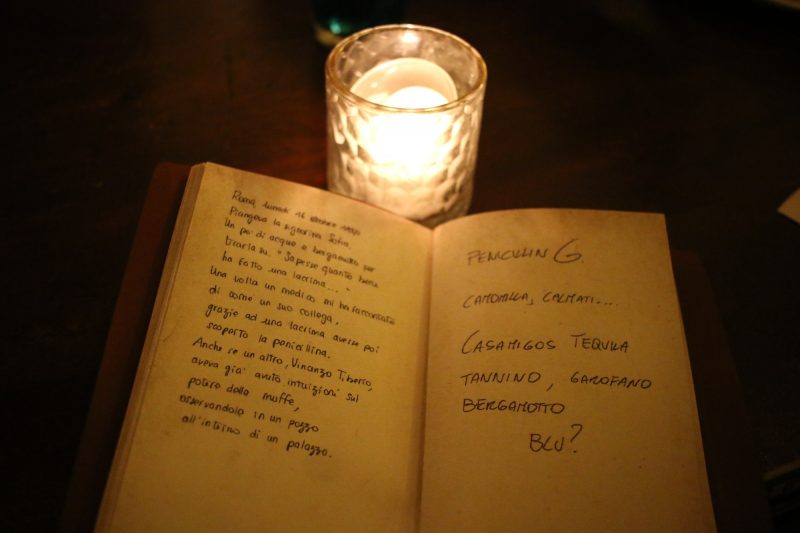 Roma, lunedì 16 ottobre
Piangeva la signorina Sofia.
Un po' di acqua e bergamotto per
tirarla su. "Sapesse quanto bene
ha fatto una lacrima..."
Una volta un medico mi ha raccontato
di come un suo collega,
grazie ad una lacrima avesse poi
scoperto la penicillina.
Anche se un altro, Vincenzo Tiberio,
aveva già avuto intuizioni sul
potere delle muffe,
osservandole in un pozzo
all'interno di un palazzo.
PENICILLIN G.
CAMOMILLA, CALMATI....
CASAMIGOS TEQUILA
TANNINO, GAROFANO
BERGAMOTTO
BLU?